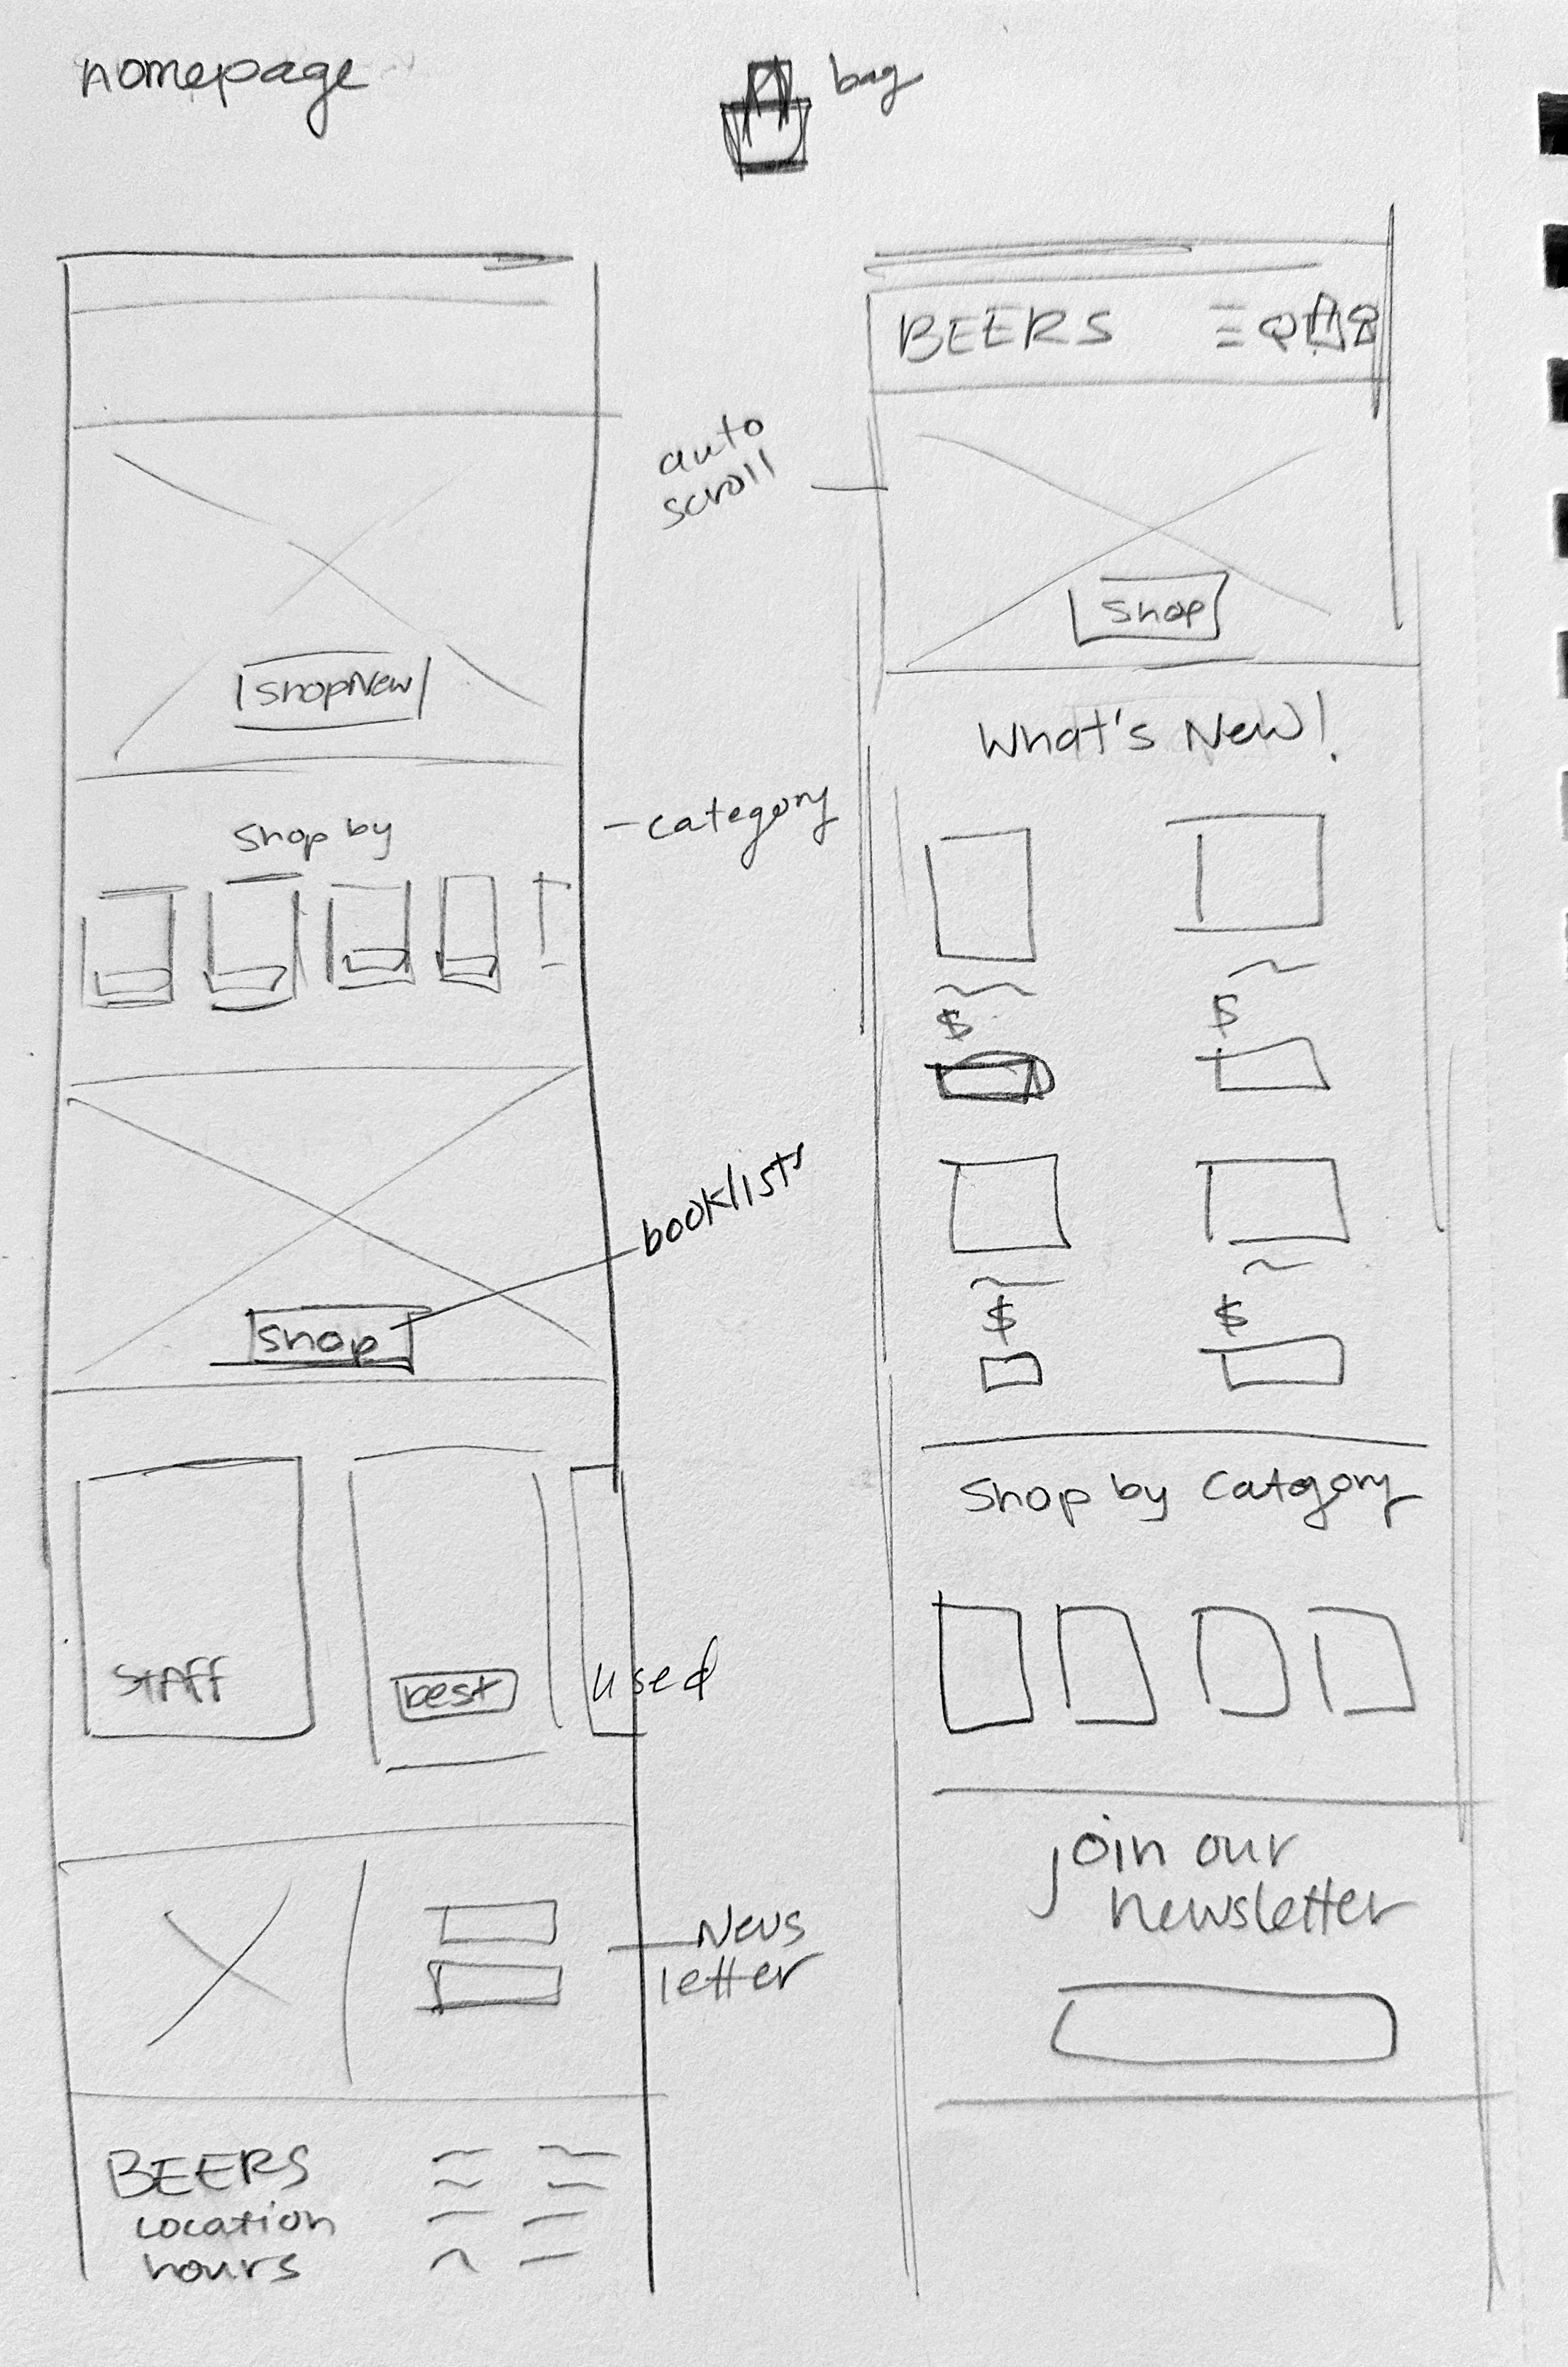 homepage
bag
shopNew
shop by
category
shop
booklists
STAFF
best
used
News
letter
BEERS
Location
hours
BEERS
auto
scroll
shop
What's New!
$
$
$
$
Shop by Catgory
Join our
newsletter